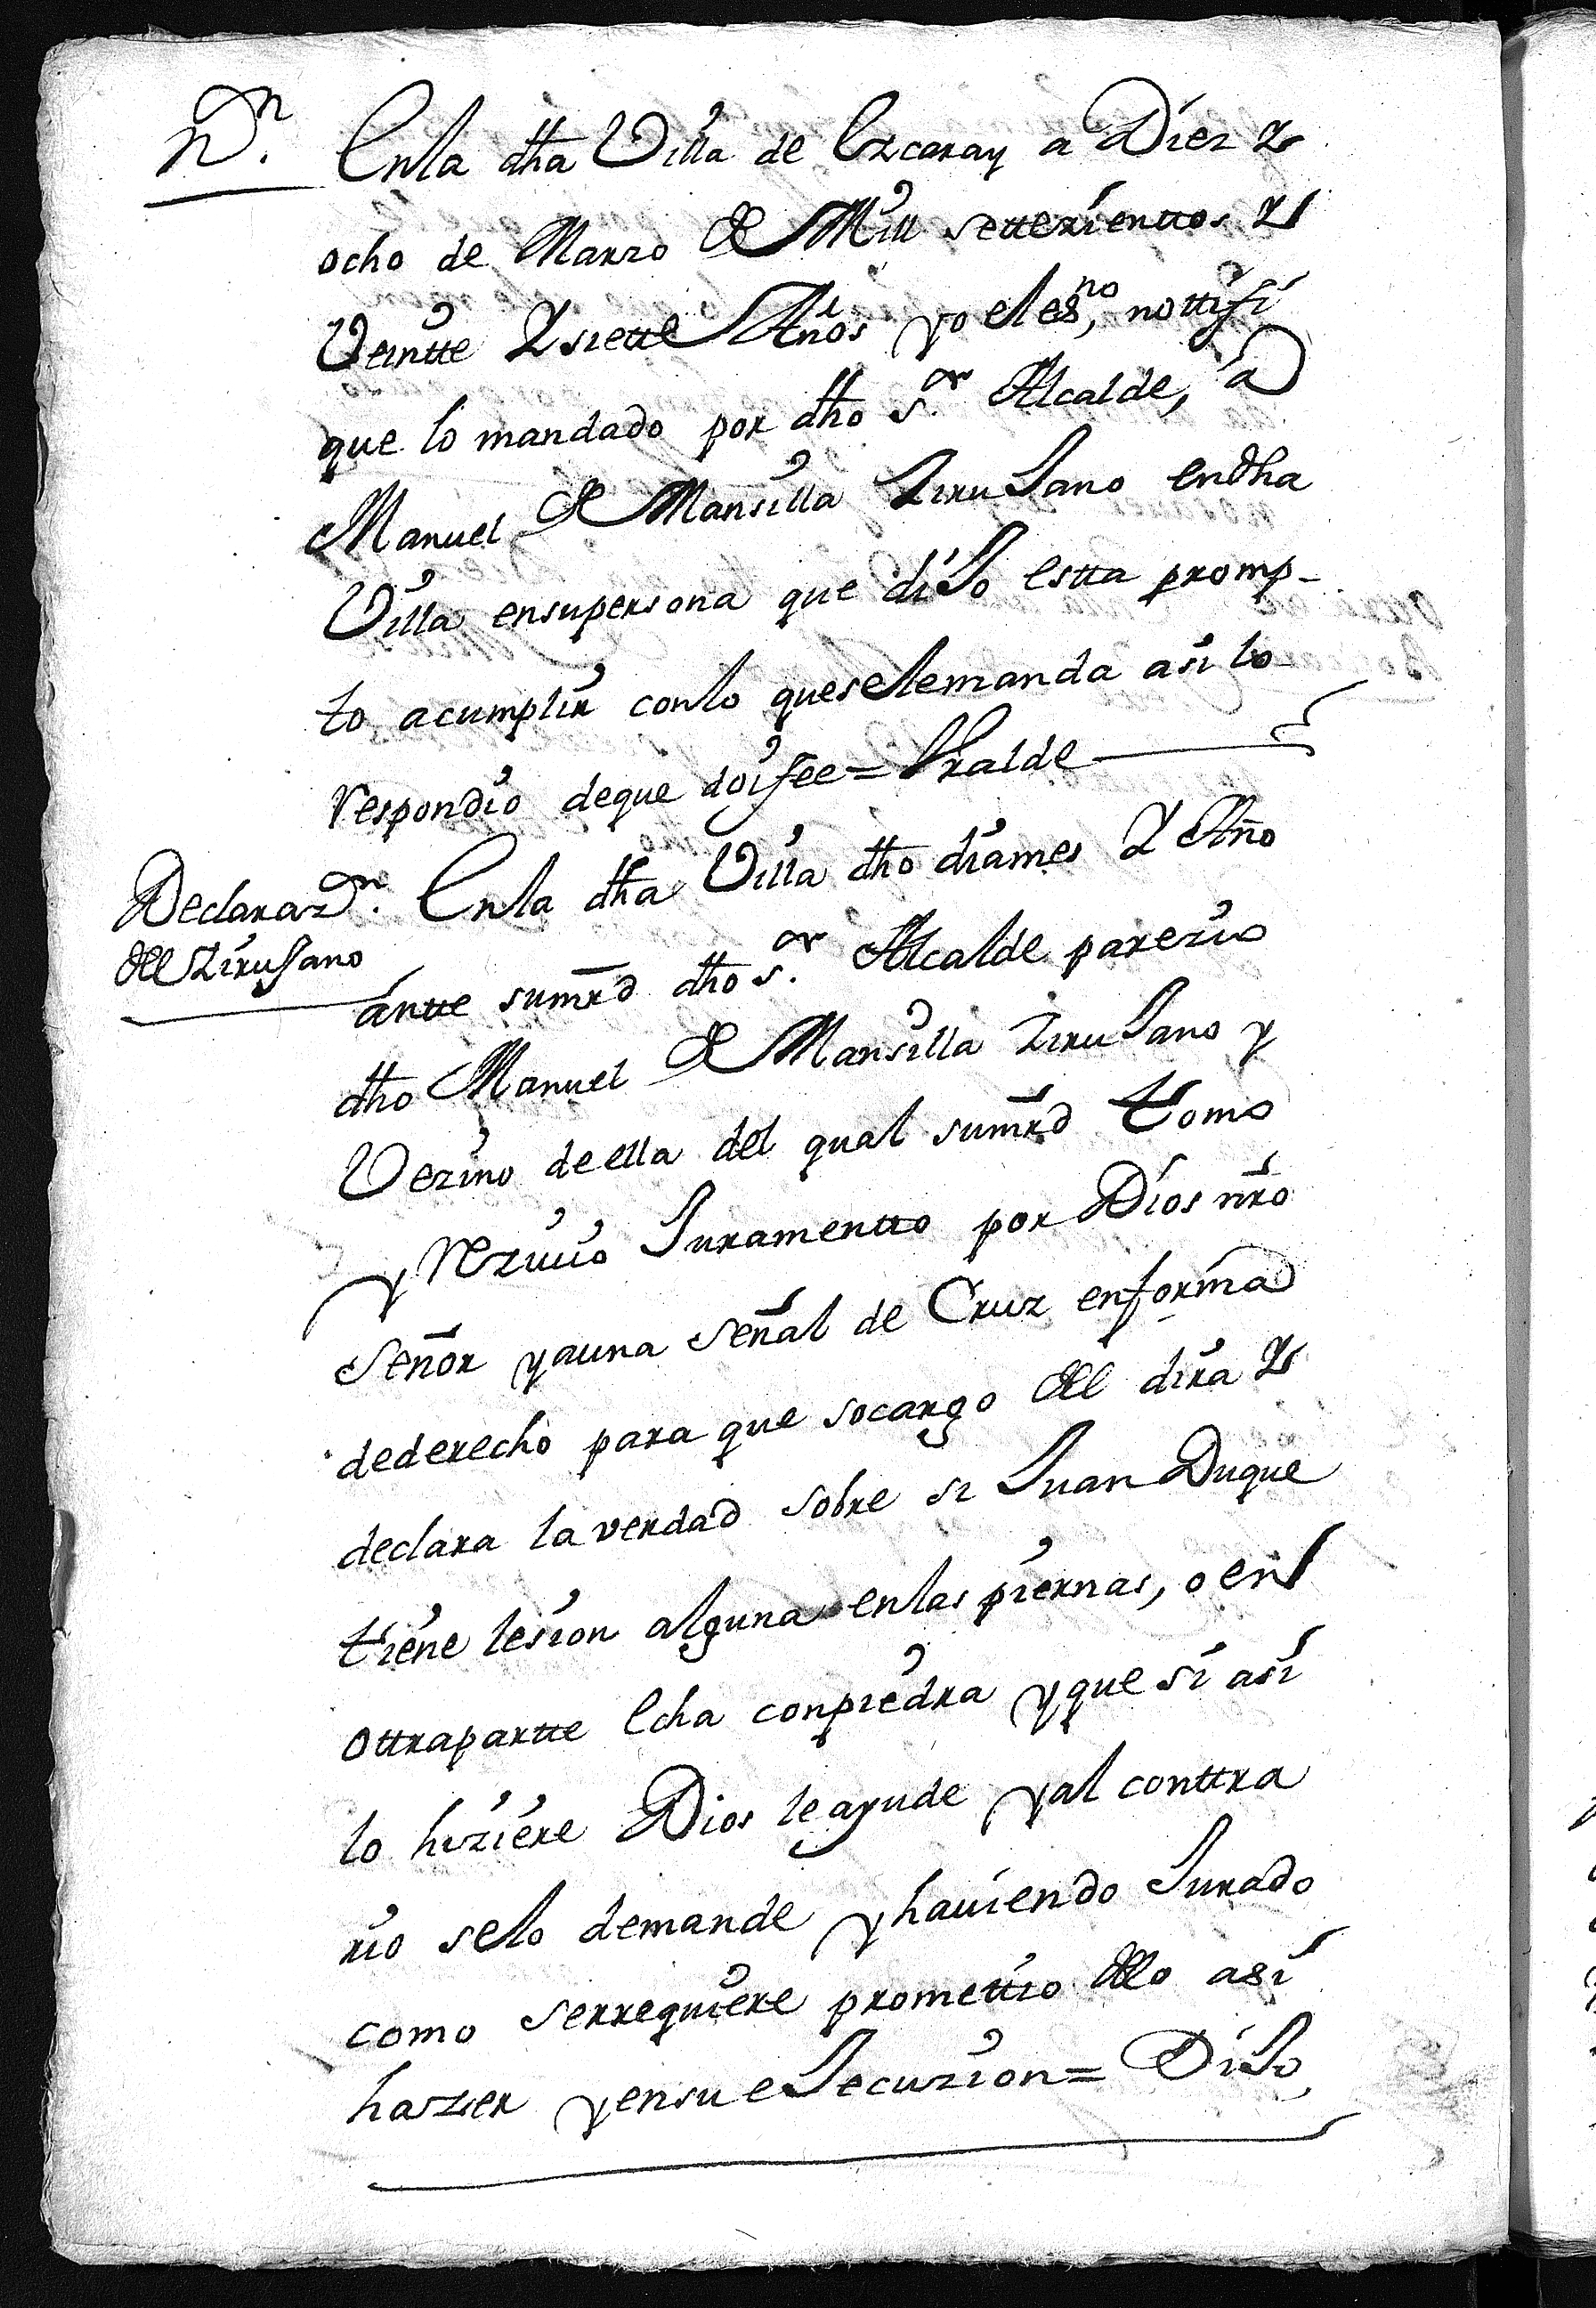 N.on Enla dha Villa de Ezcaray a Diez Y
ocho de Marzo de Mill settezienttos Y
Veintte Y siette Años yo el es.no, nottifi
que lo mandado por dho s.or Alcalde, a
Manuel de Mansilla Zirujano endha
Villa ensupersona que dijo estta promp-
to acumplir conlo queselemanda asi lo
respondio deque doifee = Uralde
Declaraz.on
del Zirujano
Enla dha Villa dho diames Y Año
antte sumrd dho s.or Alcalde parezio
dho Manuel de Mansilla Zirujano y
Vezino deella del qual sumrd tomo
y Rezivio Juramentto por Dios nro
señor yauna señal de Cruz enforma
dederecho para que socargo del dira Y
declara laverdad sobre si Juan Duque
tiene lesion alguna enlas piernas, o en
ottrapartte echa conpiedra yque si asi
lo hiziere Dios leayude yal conttra
rio selo demande yhaviendo Jurado
como serrequiere promettio dello asi
hazer yensu eJecuzion = Dijo